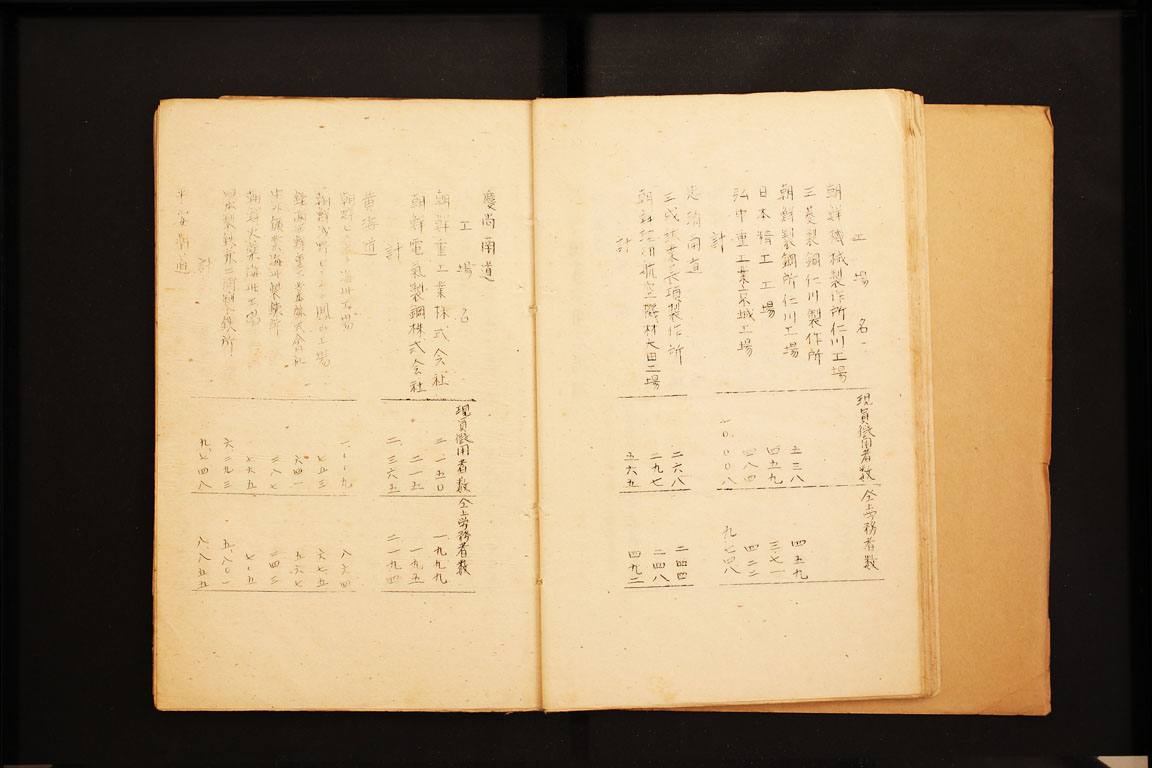 工場名
現員徴用者数
仝上労務者数
朝鮮機械製作所仁川工場
三菱製鋼仁川製作所
朝鮮製鋼所仁川工場
五三八
四五九
日本精工工場
四五九
三七一
弘中重工業京城工場
四八四
四二二
計
一〇、〇〇八
九、七四八
忠清南道
三成鉱業長項製作所
二六八
二四四
朝鮮 航空機材大田工場
二九七
二四八
計
五六五
四九二
慶尚南道
工場名
現員徴用者数
仝上労務者数
朝鮮重工業株式会社
二、一五〇
一、九九九
朝鮮電気製鋼株式会社
二一五
一九五
計
二、三六五
二、一九四
黄海道
朝鮮 海州工場
八六四
朝鮮浅野 鳳山工場
七五三
六七五
株式会社
六四一
五六七
鉱業海州製錬所
二八七
二四三
朝鮮火薬海州工場
七六五
日本製鉄 製鉄所
六、二九三
五、八〇一
計
九、七四八
八、八五五
平安南道